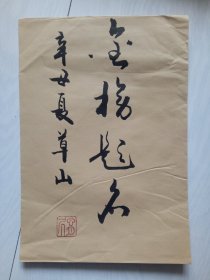 金榜题名
辛丑夏草山